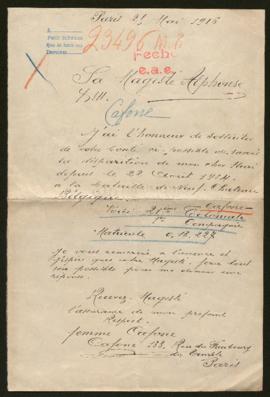 Paris 21 Mai 1916
23496
Sa Majesté Alphonse
XIII
Cafone
J'ai l'honneur de solliciter
de votre bonté si possible de savoir
la disparition de mon cher Mari
depuis le 22 Aout 1914
à la bataille de Neuf Chateau
Belgique
Cafone
21ème Coloniale
Compagnie
Matricule
Je vous remercie à l'avance et
j'espère que votre Majesté fera tout
son possible pour me donner une
réponse.
Recevez Majesté
l'assurance de mon profond
Respect.
femme Cafone
Cafone 133 Rue du Faubourg
du Temple
Paris